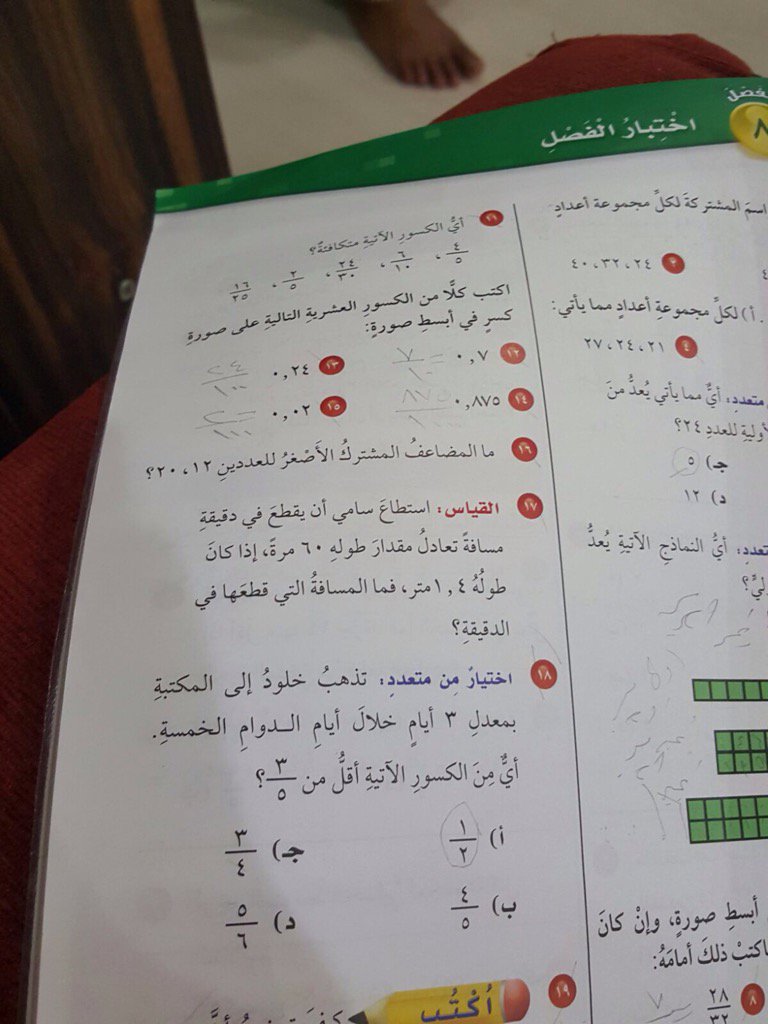 الفصل ٨
اخْتِبَارُ الْفَصْلِ
اسمَ المشتركةَ لكلِّ مجموعة أعدادٍ
٢ ٢٤، ٣٢، ٤٠
أ) لكلِّ مجموعةِ أعدادٍ مما يأتي:
٤ ٢١، ٢٤، ٢٧
متعددِ: أيٌّ مما يأتي يُعدُّ منَ
للعددِ ٢٤؟
جـ) ٥
د) ١٢
أيُّ النماذجِ الآتيةِ يُعدُّ
أبسطِ صورةٍ، وإنْ كانَ
اكتبْ ذلكَ أمامَهُ:
٨ ٢٨/٣٢ ٧
١١ أيُّ الكسورِ الآتيةِ متكافئةٌ؟
٤/٥، ٦/١٠، ٢٤/٣٠، ٢/٥، ١٦/٢٥
اكتب كلًّا من الكسورِ العشريةِ التاليةِ على صورةِ
كسرٍ في أبسطِ صورةٍ:
١٢ ٠,٧ ٧/١٠ ١٣ ٠,٢٤ ٢٤/١٠٠
١٤ ٠,٨٧٥ ٨٧٥/١٠٠٠ ١٥ ٠,٠٢
١٦ ما المضاعفُ المشتركُ الأصْغرُ للعددينِ ١٢، ٢٠؟
١٧ القياس: استطاعَ سامي أن يقطعَ في دقيقةٍ
مسافةً تعادلُ مقدارَ طولهِ ٦٠ مرةً، إذا كانَ
طولُهُ ١,٤ متر، فما المسافةُ التي قطعَها في
الدقيقةِ؟
١٨ اختيارٌ مِن متعددِ: تذهبُ خلودُ إلى المكتبةِ
بمعدلِ ٣ أيامٍ خلالَ أيامِ الـدوامِ الخمسةِ.
أيٌّ مِنَ الكسورِ الآتيةِ أقلُّ من ٣/٥؟
أ) ١/٢ جـ) ٣/٤
ب) ٤/٥ د) ٥/٦
١٩ اُكْتُب